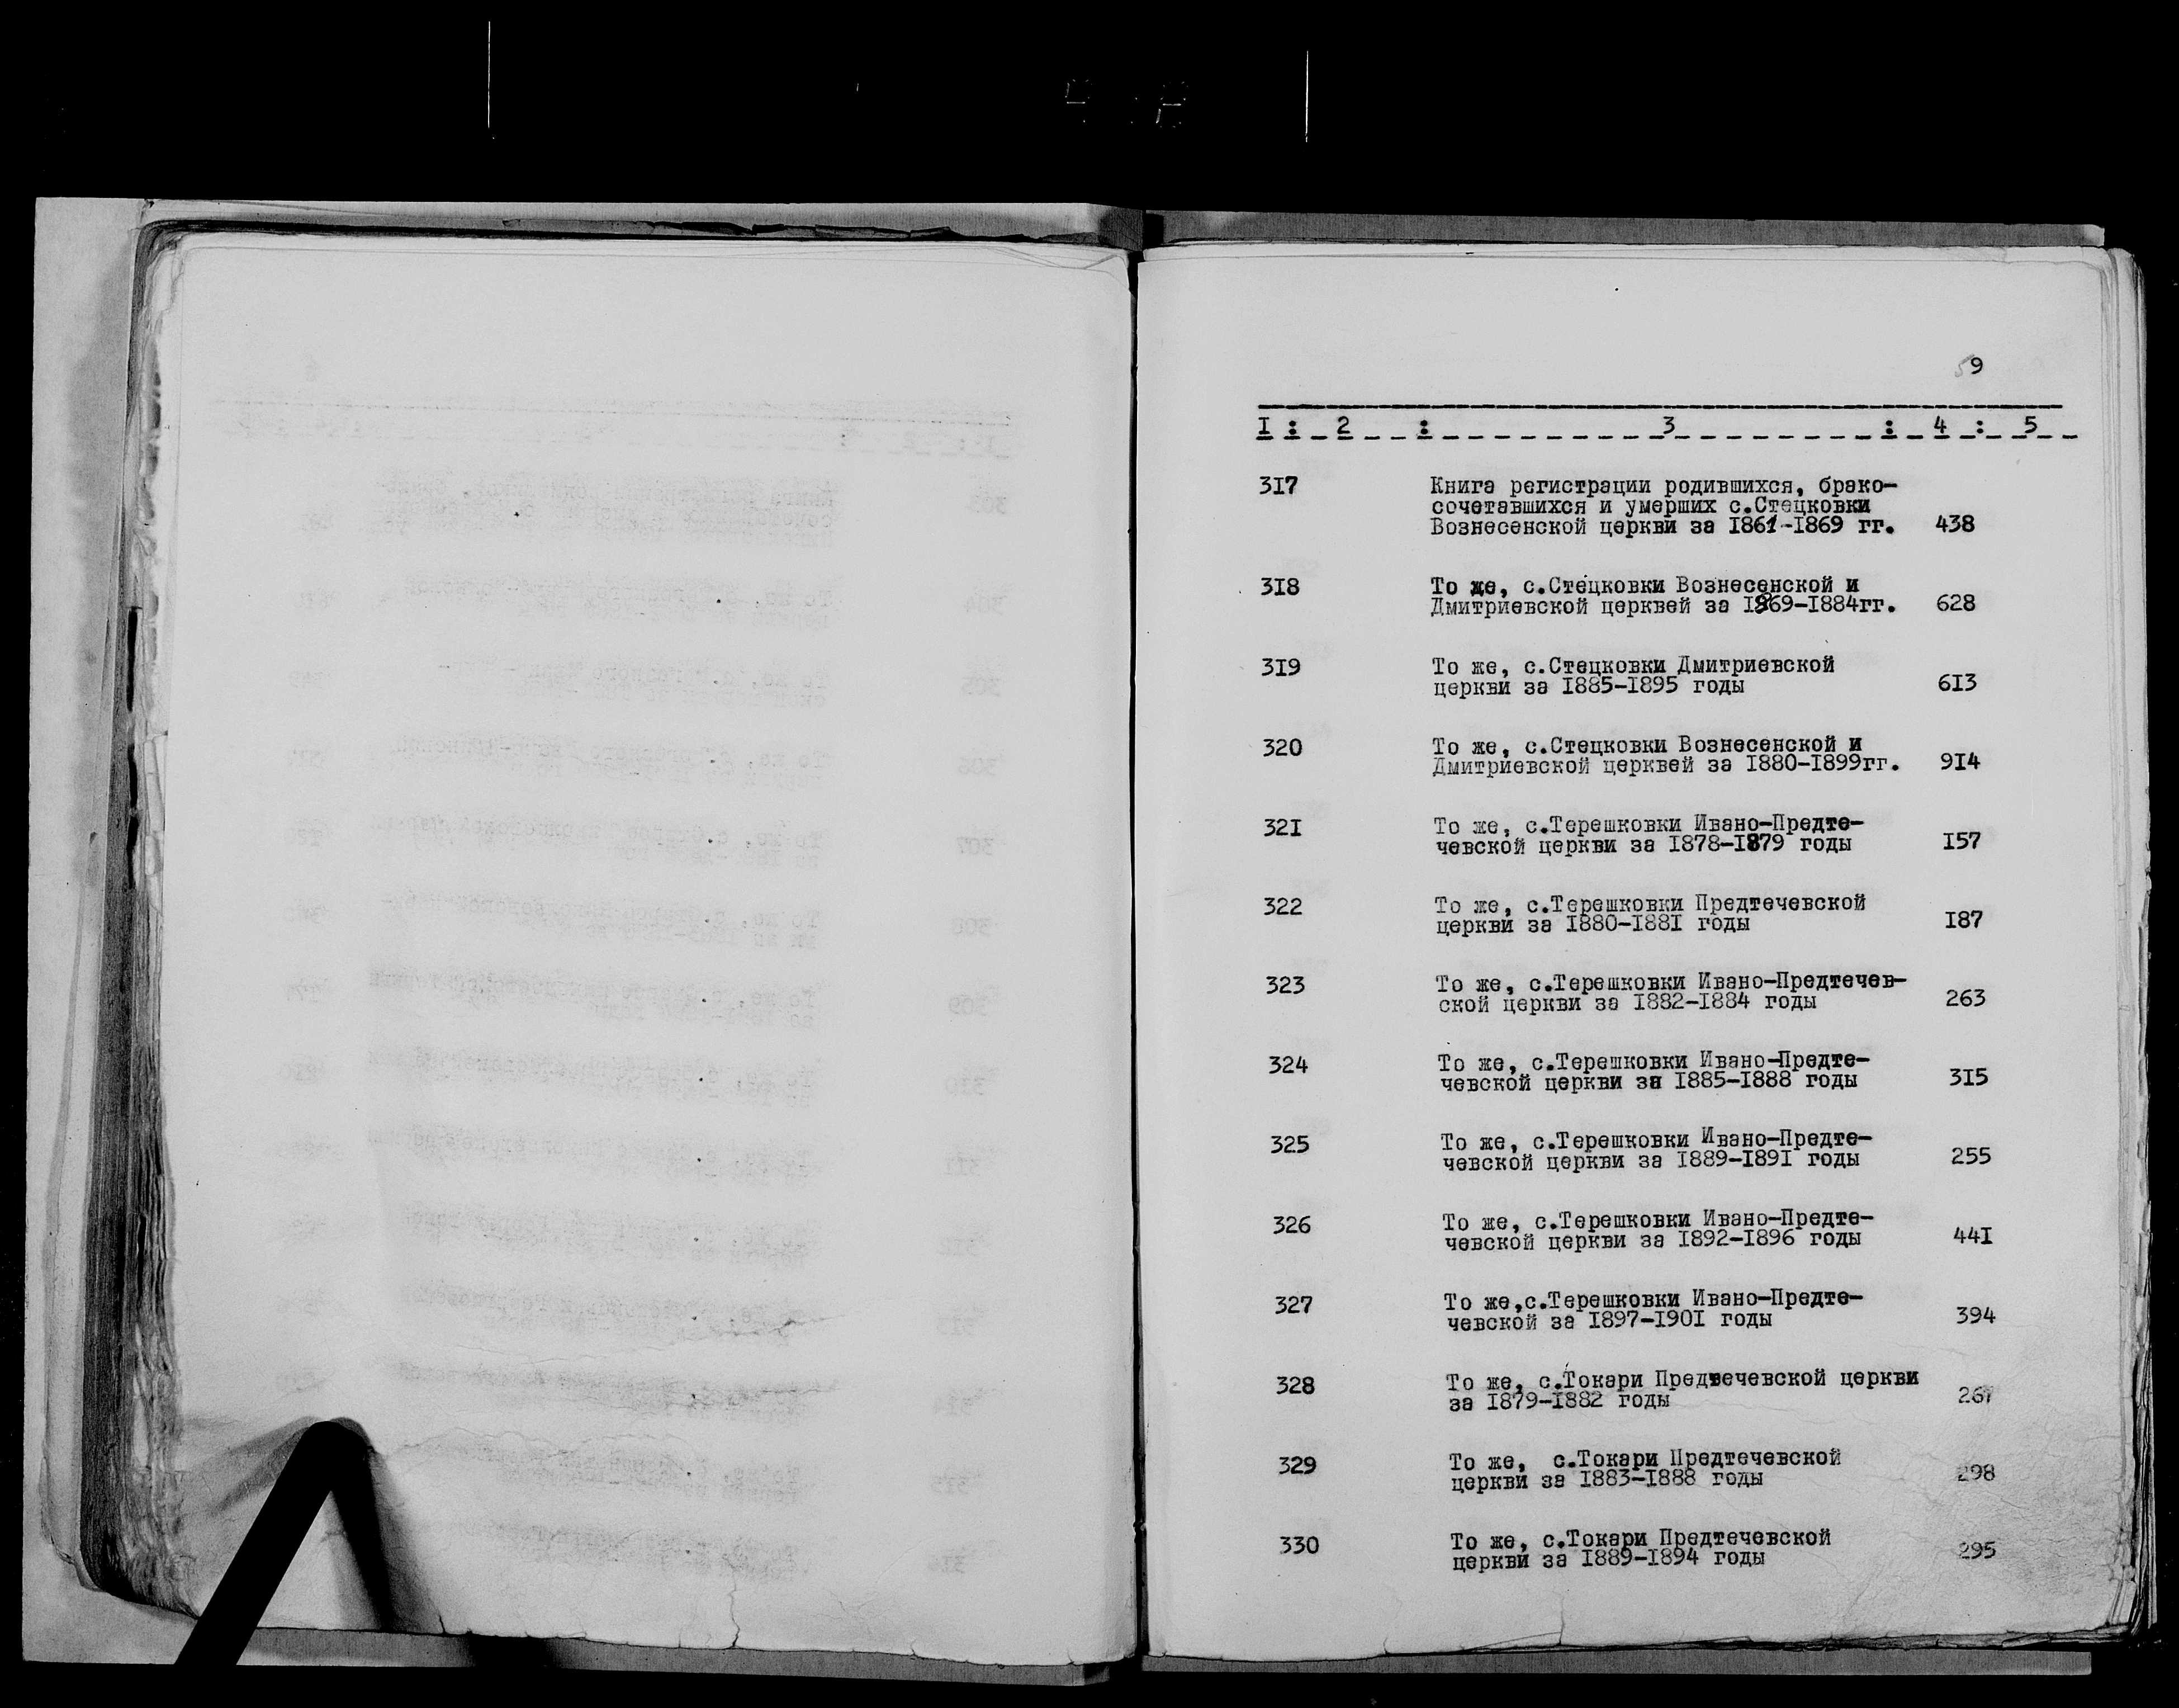 59
I : 2 : 3 : 4 : 5
317 Книга регистрации родившихся, брако-
сочетавшихся и умерших с.Стецковки
Вознесенской церкви за 1861-1869 гг. 438
318 То же, с.Стецковки Вознесенской и
Дмитриевской церквей за 1869-1884гг. 628
319 То же, с.Стецковки Дмитриевской
церкви за 1885-1895 годы 613
320 То же, с.Стецковки Вознесенской и
Дмитриевской церквей за 1880-1899гг. 914
321 То же, с.Терешковки Ивано-Предте-
чевской церкви за 1878-1879 годы 157
322 То же, с.Терешковки Предтечевской
церкви за 1880-1881 годы 187
323 То же, с.Терешковки Ивано-Предтечев-
ской церкви за 1882-1884 годы 263
324 То же, с.Терешковки Ивано-Предте-
чевской церкви за 1885-1888 годы 315
325 То же, с.Терешковки Ивано-Предте-
чевской церкви за 1889-1891 годы 255
326 То же, с.Терешковки Ивано-Предте-
чевской церкви за 1892-1896 годы 441
327 То же,с.Терешковки Ивано-Предте-
чевской за 1897-1901 годы 394
328 То же, с.Токари Предтечевской церкви
за 1879-1882 годы 267
329 То же, с.Токари Предтечевской
церкви за 1883-1888 годы 298
330 То же, с.Токари Предтечевской
церкви за 1889-1894 годы 295